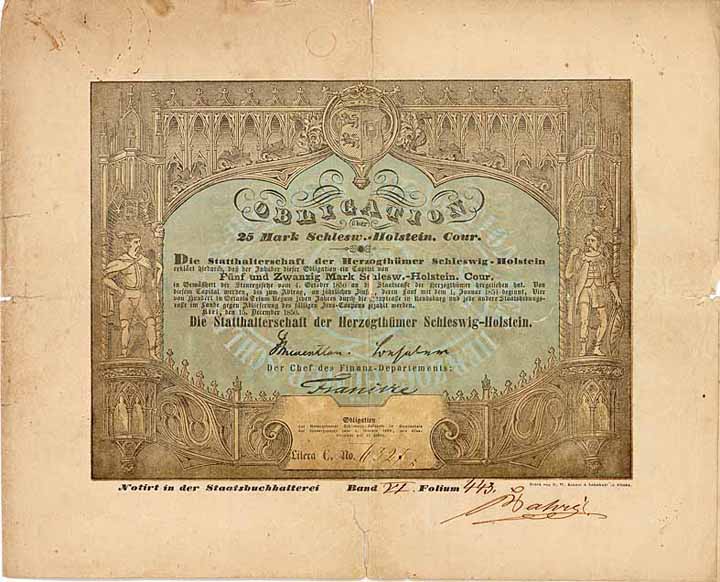 OBLIGATION
über
25 Mark Schlesw.-Holstein. Cour.
Die Statthalterschaft der Herzogthümer Schleswig-Holstein
erklärt hiedurch, daß der Inhaber dieser Obligation ein Capital von
Fünf und Zwanzig Mark Schlesw.-Holstein. Cour.
in Gemäßheit des Steuergesetzes vom 4. October 1850 an die Staatscasse der Herzogthümer hergeliehen hat. Von
diesem Capital werden, bis zum Abtrag, an jährlichen Zinsen, deren Lauf mit dem 1. Januar 1851 beginnt, Vier
von Hundert in Octavis Trium Regum jeden Jahres durch die Hauptcasse in Rendsburg und jede andere Staatshebungs-
casse im Lande gegen Ablieferung des fälligen Zins-Coupons gezahlt werden.
Kiel, den 15. December 1850.
Die Statthalterschaft der Herzogthümer Schleswig-Holstein.
Der Chef des Finanz-Departements:
Francke
Obligation
Litera C. No.
Notirt in der Staatsbuchhalterei Band VI. Folium 443.